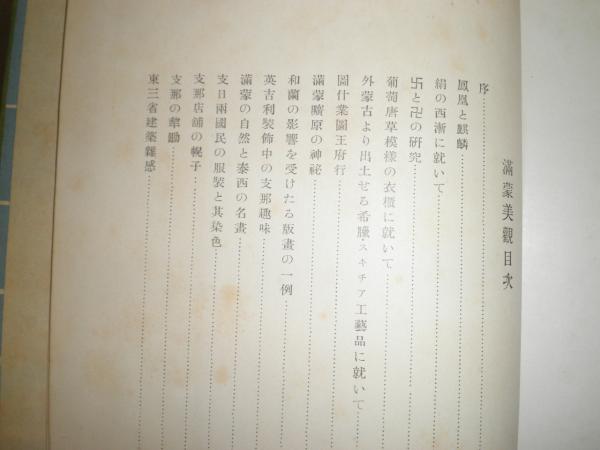 滿蒙美觀目次
序
鳳凰と麒麟
絹の西漸に就いて
卐と卍の研究
葡萄唐草模樣の衣櫃に就いて
外蒙古より出土せる希臘・スキチア工藝品に就いて
圖什業圖王府行
滿蒙曠原の神祕
和蘭の影響を受けたる版畫の一例
英吉利裝飾中の支那趣味
滿蒙の自然と泰西の名畫
支日兩國民の服裝と其染色
支那店舖の幌子
支那の犂鋤
東三省建築雜感